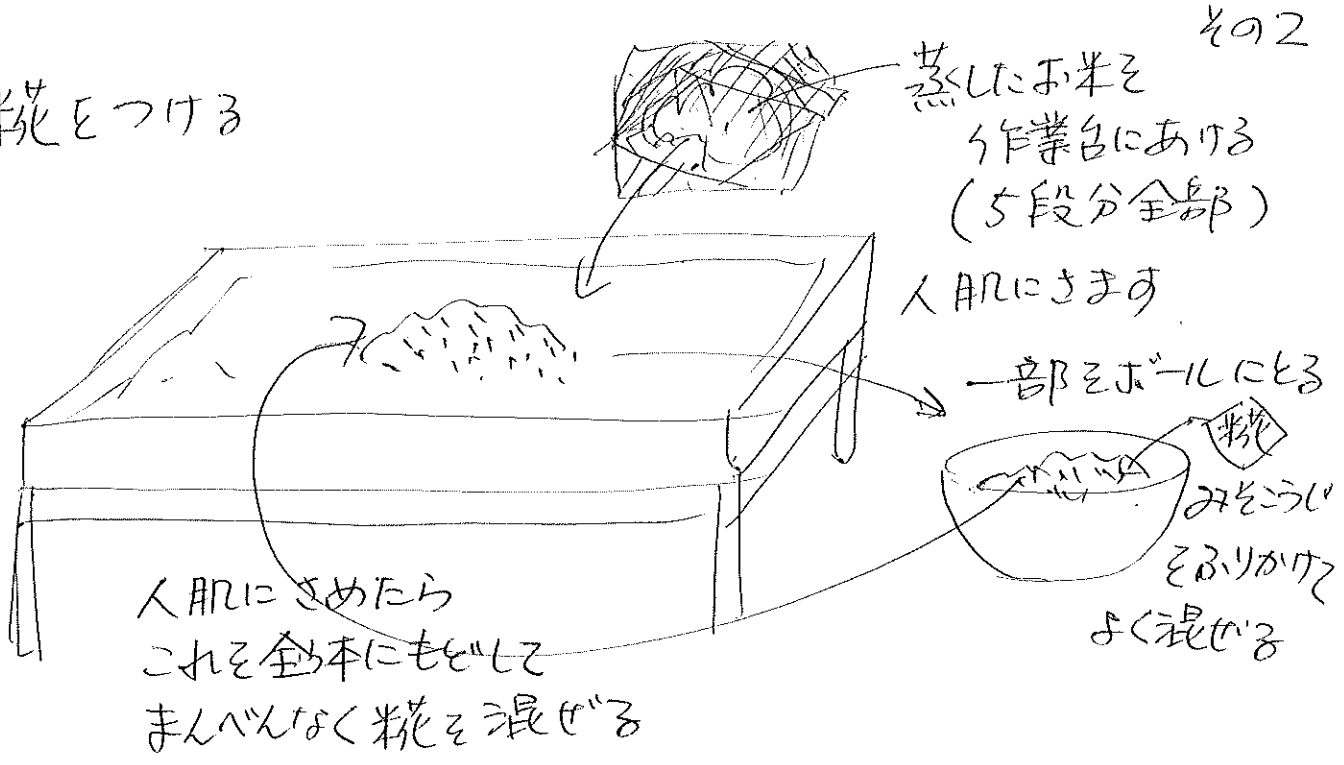 その2
糀をつける
蒸したお米を
作業台にあける
(5段分全部)
人肌にさます
一部をボールにとる
糀
みそこうじ
をふりかけて
よく混ぜる
人肌にさめたら
これを全体にもどして
まんべんなく糀を混ぜる